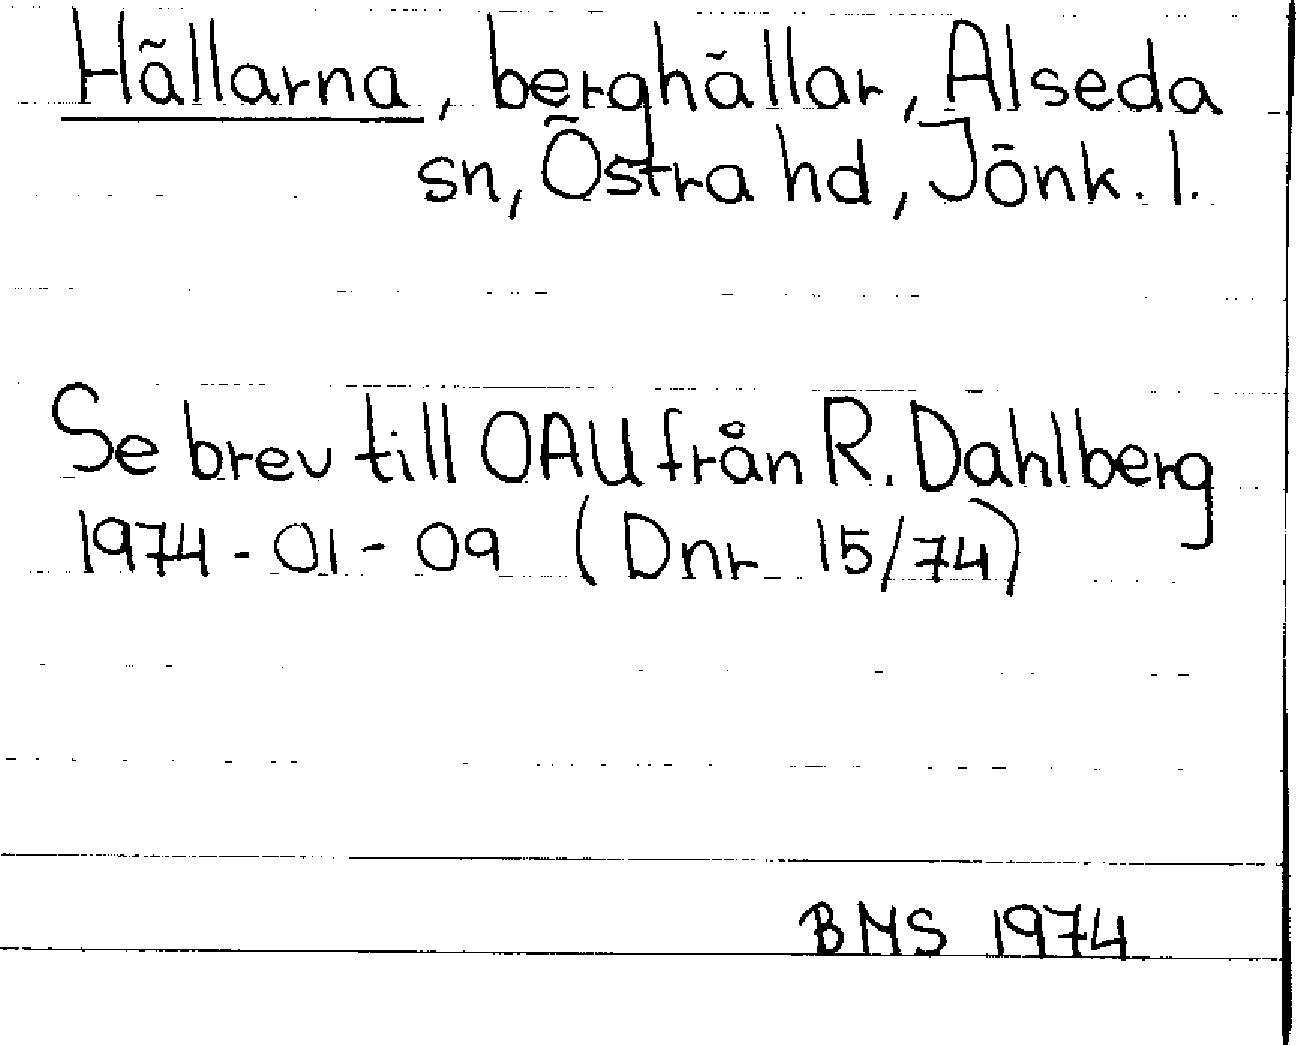 Hällarna, berghällar, Alseda
sn, Östra hd, Jönk. l.
Se brev till OAU från R. Dahlberg
1974-01-09 (Dnr 15/74)
BMS 1974